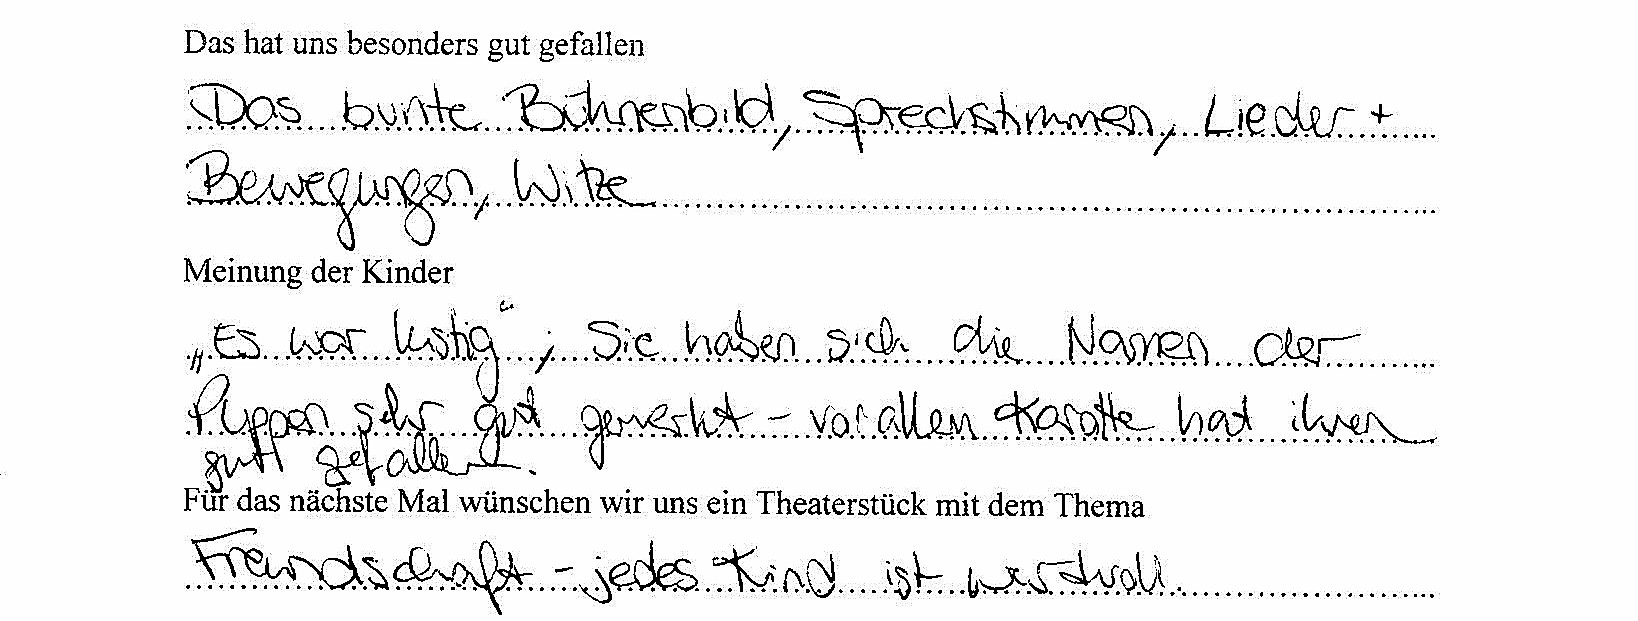 Das hat uns besonders gut gefallen
Das bunte Bühnenbild, Sprechstimmen, Lieder +
Bewegungen, Witze
Meinung der Kinder
„Es war lustig“; Sie haben sich die Namen der
Puppen sehr gut gemerkt – vor allem Karotte hat ihnen
gut gefallen.
Für das nächste Mal wünschen wir uns ein Theaterstück mit dem Thema
Freundschaft – jedes Kind ist wertvoll.